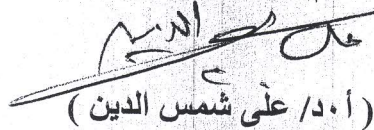 ( أ.د/ على شمس الدين )